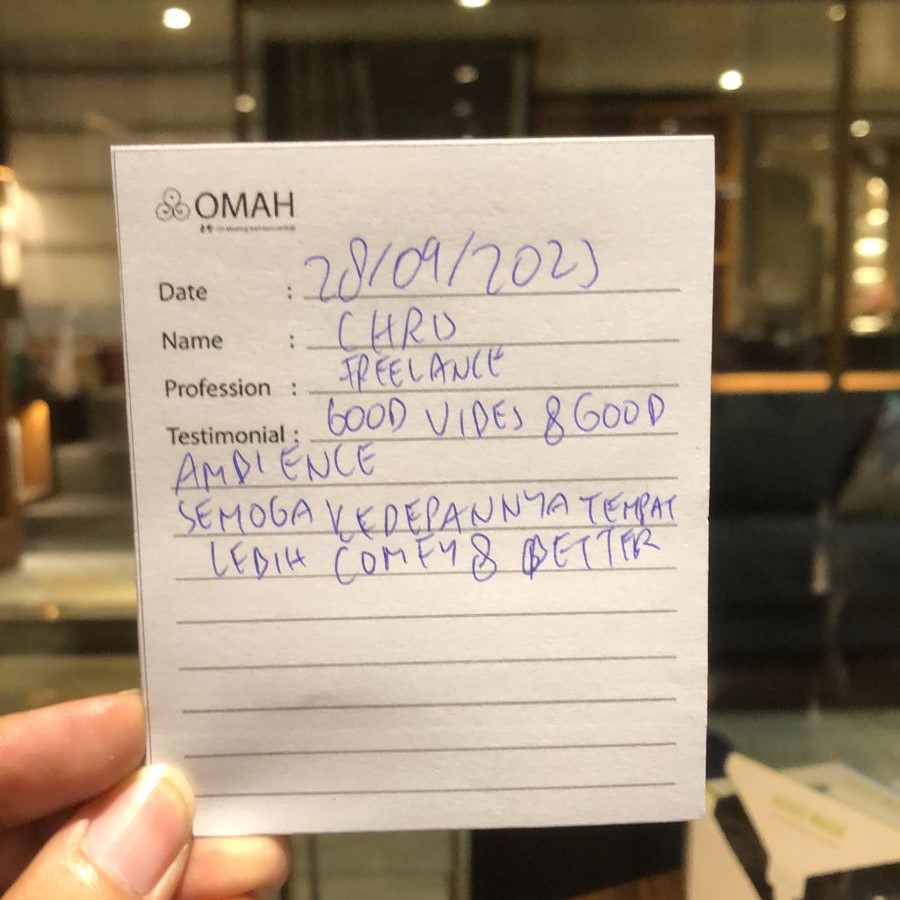 OMAH
Date : 28/09/2023
Name : CHRU
Profession : FREELANCE
Testimonial : GOOD VIBES & GOOD
AMBIENCE
SEMOGA KEDEPANNYA TEMPAT
LEBIH COMFY & BETTER